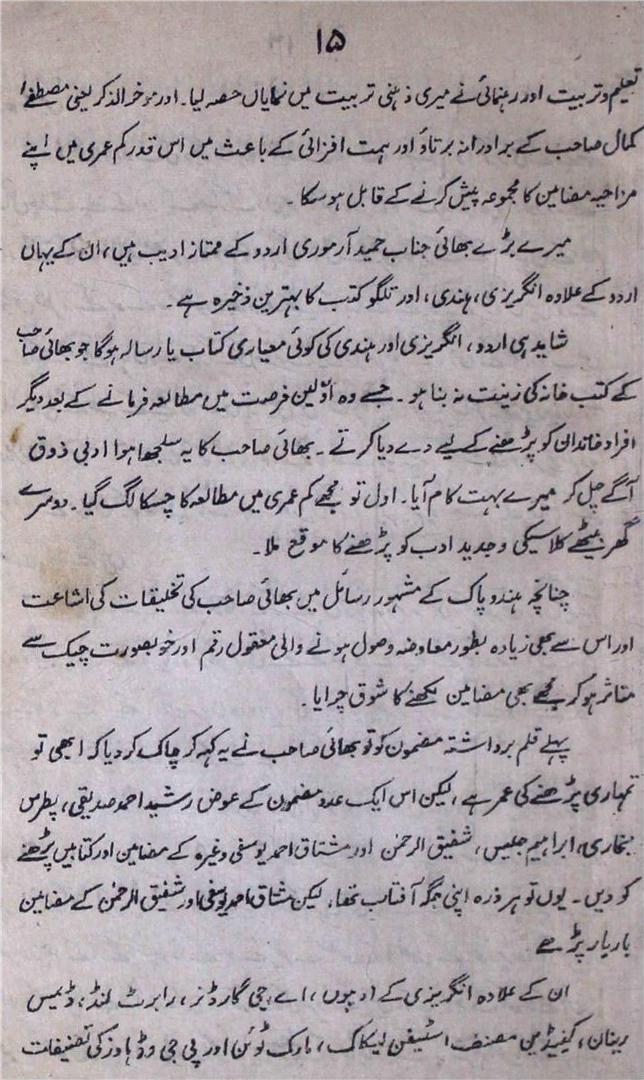 ۱۵
تعلیم و تربیت اور رہنمائی نے میری ذہنی تربیت میں نمایاں حصہ لیا۔ اور موخر الذکر یعنی مصطفےٰ
کمال صاحب کے برادرانہ برتاؤ اور ہمت افزائی کے باعث میں اس قدر کم عمری میں اپنے
مزاحیہ مضامین کا مجموعہ پیش کرنے کے قابل ہوسکا۔
میرے بڑے بھائی جناب حمید آرموری اردو کے ممتاز ادیب ہیں، ان کے یہاں
اردو کے علاوہ انگریزی، ہندی، اور تلگو کتب کا بہترین ذخیرہ ہے۔
شاید ہی اردو، انگریزی اور ہندی کی کوئی معیاری کتاب یا رسالہ ہوگا جو بھائی صاحب
کے کتب خانہ کی زینت نہ بنا ہو۔ جسے وہ اوّلین فرصت میں مطالعہ فرمانے کے بعد دیگر
افراد خاندان کو پڑھنے کے لیے دے دیا کرتے۔ بھائی صاحب کا یہ سلجھا ہوا ادبی ذوق
آگے چل کر میرے بہت کام آیا۔ اول تو مجھے کم عمری میں مطالعہ کا چسکا لگ گیا۔ دوسرے
گھر بیٹھے کلاسیکی و جدید ادب کو پڑھنے کا موقع ملا۔
چنانچہ ہندو پاک کے مشہور رسائل میں بھائی صاحب کی تخلیقات کی اشاعت
اور اس سے بھی زیادہ بطور معاوضہ وصول ہونے والی معقول رقم اور خوبصورت چیک سے
متاثر ہوکر مجھے بھی مضامین لکھنے کا شوق چرایا۔
پہلے قلم برداشتہ مضمون کو تو بھائی صاحب نے یہ کہہ کر چاک کردیا کہ ابھی تو
تمہاری پڑھنے کی عمر ہے، لیکن اس ایک عدد مضمون کے عوض رشید احمد صدیقی، پطرس
بخاری، ابراہیم جلیس، شفیق الرحمٰن اور مشتاق احمد یوسفی وغیرہ کے مضامین اور کتابیں پڑھنے
کو دیں۔ یوں تو ہر ذرہ اپنی جگہ آفتاب تھا، لیکن مشتاق احمد یوسفی اور شفیق الرحمٰن کے مضامین
بار بار پڑھے
ان کے علاوہ انگریزی کے ادیبوں، اے، جی گارڈنر، رابرٹ لنڈ، ڈیمس
رینان، کینیڈین مصنف اسٹیفن لیکاک، مارک ٹوئن اور پی جی وڈ ہاوز کی تصنیفات